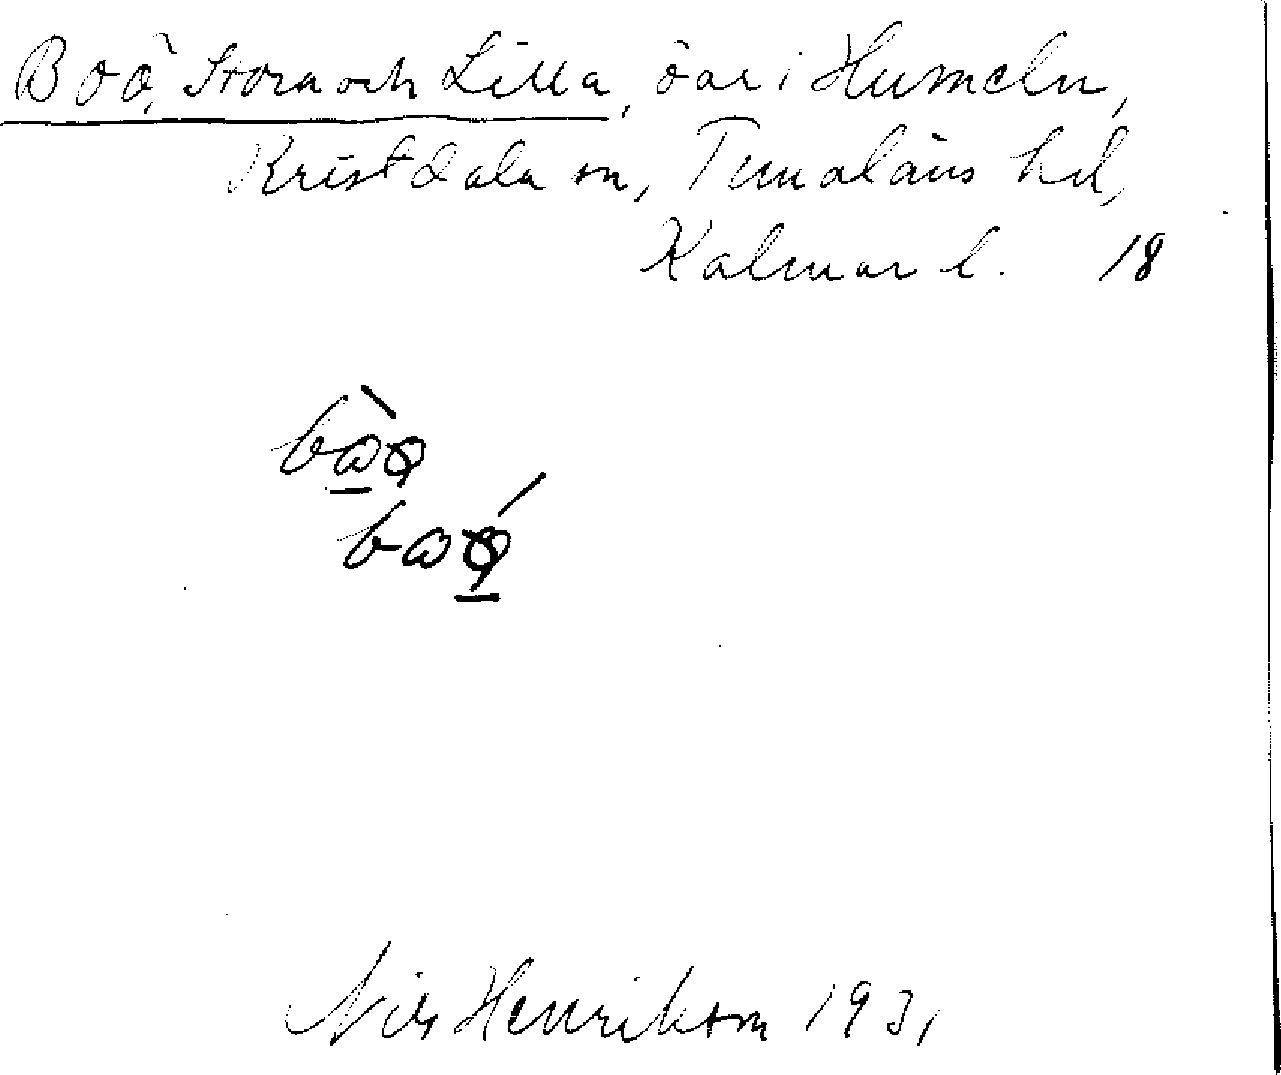 Boö, Stora och Lilla, öar i Humeln,
Kristdala sn, Tunaläns hd,
Kalmar l. 18
Nils Henrikson 1931